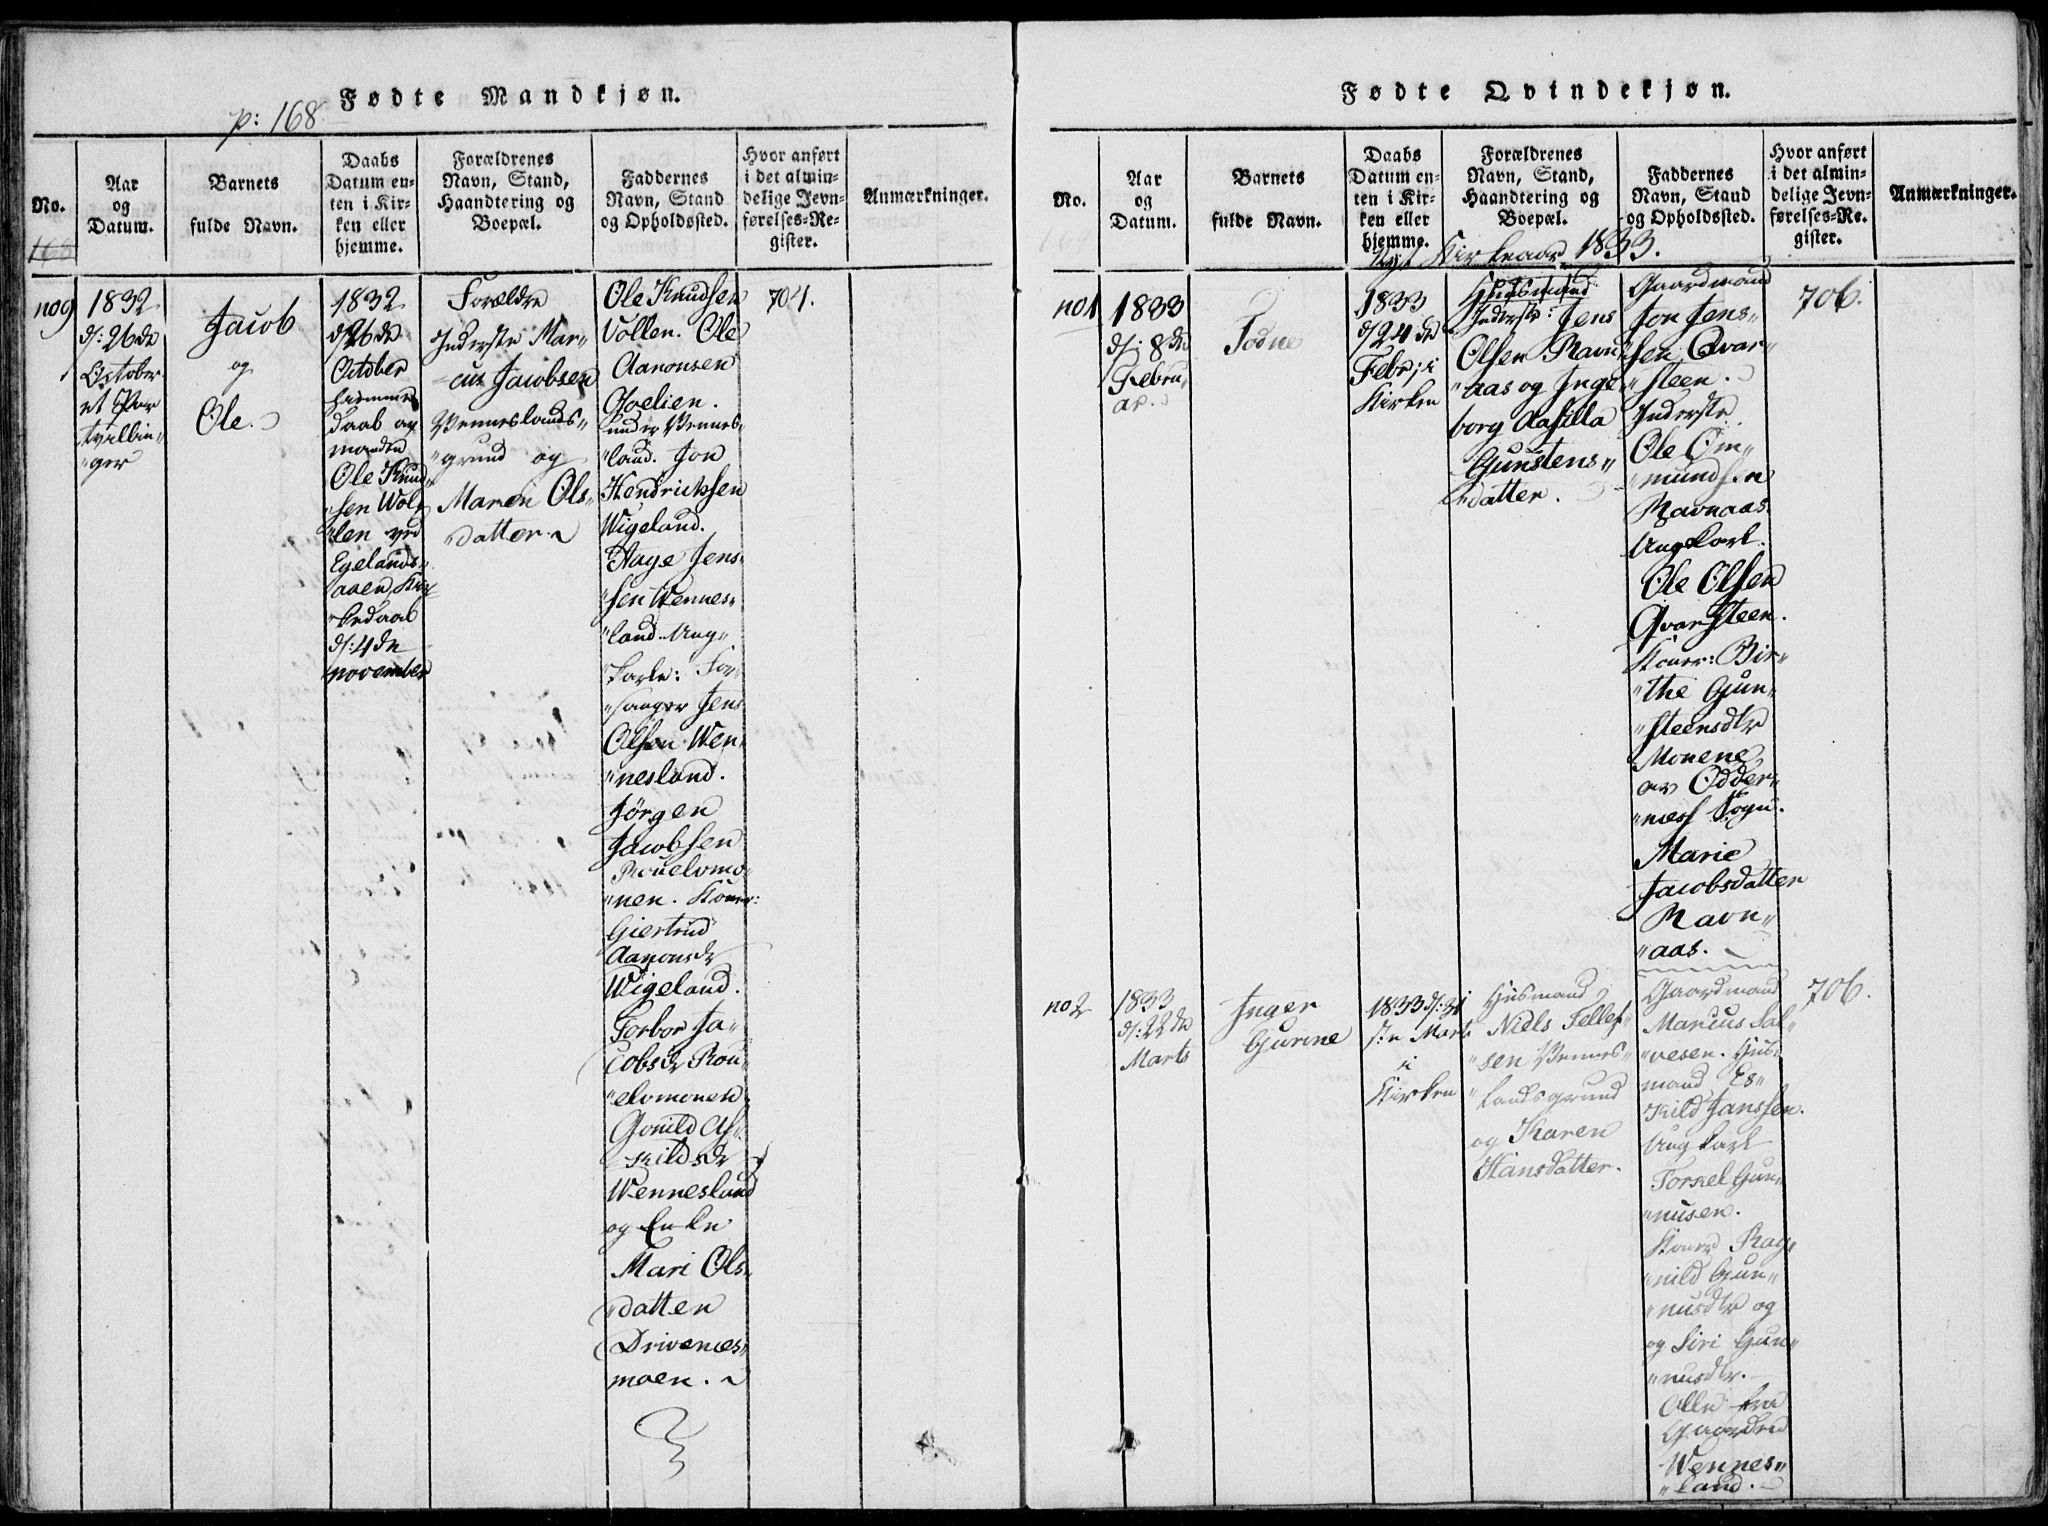 p: 168.
Fødte Mandkjøn.
No.
168
Aar
og
Datum.
Barnets
fulde Navn.
Daabs
Datum en-
ten i Kir-
ken eller
hjemme.
Forældrenes
Navn, Stand,
Haandtering og
Boepæl.
Faddernes
Navn, Stand
og Opholdssted.
Hvor anført
i det almin-
delige Jevn-
førelses-Re-
gister.
Anmærkninger.
no 9
1832
d: 26de
October
et Par
tvillin„
„ger
Jacob
og
Ole.
1832
d 26de
October
hiemme
daab av
manden
Ole Knud„
„sen Wol„
„len ved
Egelands„
aaen, Kir„
„kedaab
d: 4de
november
Forældre
Inderste Mar„
„cus Jacobsen
Venneslands„
„grund og
Maren Ols„
datter
Ole Knudsen
Vollen. Ole
Aanonsen
under Vennes„
„land. Jon
Hendricksen
Wigeland.
Aage Jens„
„sen Wennes„
„land. Ung„
„karle: For„
„sanger Jens
Olsen Wen„
„nesland.
Jørgen
Jacobsen
„nen. Koner:
Giertrud
Aanonsdr
Wigeland.
Torbor Ja„
cobsdr Rou„
„elomonen
Gonild As„
„kildsdr
Wennesland
og Enke
Mari Ols„
„datter
Drivenes„
moen.
704.
Fødte Qvindekjøn.
No.
Aar
og
Datum.
Barnets
fulde Navn.
Daabs
Datum en-
ten i Kir-
ken eller
hjemme.
Forældrenes
Navn, Stand,
Haandtering og
Boepæl.
Faddernes
Navn, Stand
og Opholdssted.
Hvor anført
i det almin-
delige Jevn-
førelses-Re-
gister.
Anmærkninger.
Nyt Kirkeaar 1833.
no 1
1833
d: 8de
Febru„
ar.
Todne
1833
d 24de
Febr: i
Kirken
Huusmand
Inderste: Jens
Olsen Ravn„
„aas og Inge„
borg Aasilla
Gunstens„
„datter.
Gaardmand
Jon Jens„
„sen Qvar„
„steen.
Inderste
Ole Om„
„mundsen
Ravnaas.
Ungkarl
Ole Olsen
Qvarsteen.
Koner: Bir„
„the Gun„
„steensdtr
Monene
av Odder„
„næss Sogn.
Marie
Jacobsdatter
Ravn„
„aas.
706.
no 2
1833
d: 22de
Marts
Inger
Gurine
1833 d: 31
ste Marts
i
Kirken
Husmand
Niels Tellef„
„sen Vennes„
„landsgrund
og Karen
Hansdatter.
Gaardmand
Marcus Sal„
„vesen. Hus„
mand Es„
„kild Janssen.
Ungkarl
Torkel Gun„
„nusen.
Koner Rag„
„nild Gun„
„nusdtr og
og Siri Gun„
„nusdtr.
Alle fra
Gaarden
Wennes„
„land.
706.